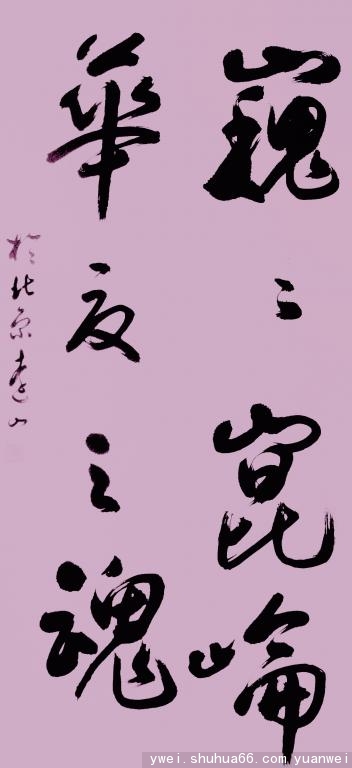 巍〻崑崙
華夏之魂
於北京
ywei.shuhua66.com/yuanwei